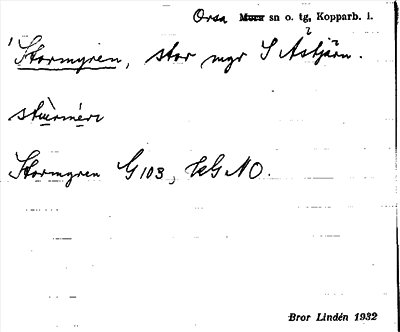 Orsa Mora sn o. tg, Kopparb. l.
Stormyren, stor myr S Astjärn.
stùrmèrε
Stormyren G103, HGNO.
Bror Lindén 1932